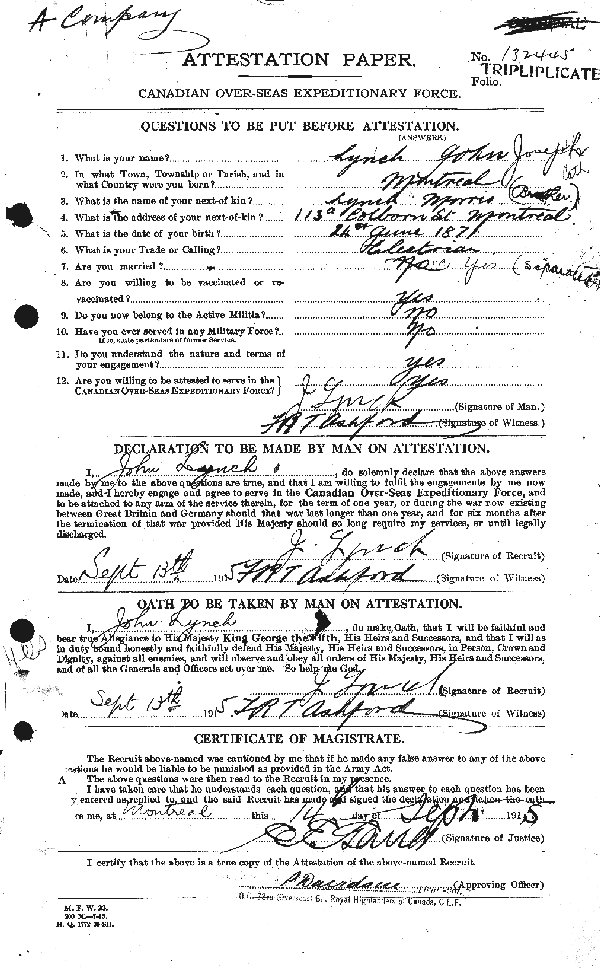 A Company
ATTESTATION PAPER.
No. 132445
TRIPLIPLICATE
Folio.
CANADIAN OVER-SEAS EXPEDITIONARY FORCE.
QUESTIONS TO BE PUT BEFORE ATTESTATION.
(ANSWERS)
1. What is your name? Lynch John Joseph
2. In what Town, Township or Parish, and in
what Country were you born? Montreal
3. What is the name of your next-of-kin? Lynch Morris (Brother)
4. What is the address of your next-of-kin? 113a Colborn St. Montreal
5. What is the date of your birth? 24th June 1871
6. What is your Trade or Calling? Electrician
7. Are you married? No Yes (separated)
8. Are you willing to be vaccinated or re-
vaccinated? Yes
9. Do you now belong to the Active Militia? No
10. Have you ever served in any Military Force? No
If so, state particulars of former Service.
11. Do you understand the nature and terms of
your engagement? yes
12. Are you willing to be attested to serve in the
CANADIAN OVER-SEAS EXPEDITIONARY FORCE? Yes
J Lynch (Signature of Man.)
F.R.T Ashford (Signature of Witness)
DECLARATION TO BE MADE BY MAN ON ATTESTATION.
I, John Lynch, do solemnly declare that the above answers
made by me to the above questions are true, and that I am willing to fulfil the engagements by me now
made, and I hereby engage and agree to serve in the Canadian Over-Seas Expeditionary Force, and
to be attached to any arm of the service therein, for the term of one year, or during the war now existing
between Great Britain and Germany should that war last longer than one year, and for six months after
the termination of that war provided His Majesty should so long require my services, or until legally
discharged.
J. Lynch (Signature of Recruit)
Date Sept 13th 1915 F.R.T Ashford (Signature of Witness)
OATH TO BE TAKEN BY MAN ON ATTESTATION.
I, John Lynch, do make Oath, that I will be faithful and
bear true Allegiance to His Majesty King George the Fifth, His Heirs and Successors, and that I will as
in duty bound honestly and faithfully defend His Majesty, His Heirs and Successors, in Person, Crown and
Dignity, against all enemies, and will observe and obey all orders of His Majesty, His Heirs and Successors,
and of all the Generals and Officers set over me. So help me God.
J Lynch (Signature of Recruit)
Date Sept 13th 1915 F.R.T Ashford (Signature of Witness)
CERTIFICATE OF MAGISTRATE.
The Recruit above-named was cautioned by me that if he made any false answer to any of the above
questions he would be liable to be punished as provided in the Army Act.
A The above questions were then read to the Recruit in my presence.
I have taken care that he understands each question, and that his answer to each question has been
y entered as replied to, and the said Recruit has made and signed the declaration and taken the oath
re me, at Montreal this 14 day of Sept 1915
(Signature of Justice)
I certify that the above is a true copy of the Attestation of the above-named Recruit.
(Approving Officer)
O.C. 73rd (Overseas) Bn., Royal Highlanders of Canada, C.E.F.
M. F. W. 23.
H. Q. 1772-39-841.